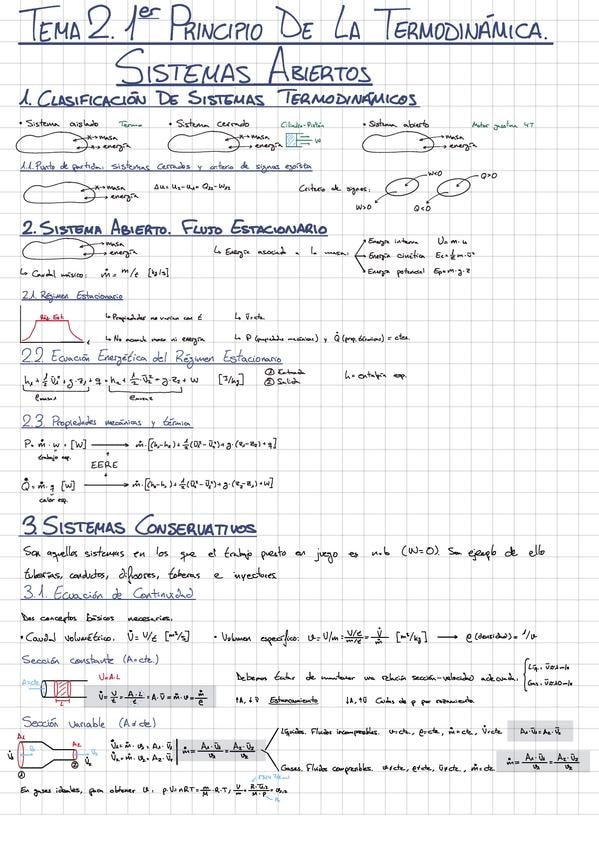 TEMA 2. 1er PRINCIPIO DE LA TERMODINÁMICA.
SISTEMAS ABIERTOS
1. CLASIFICACIÓN DE SISTEMAS TERMODINÁMICOS
• Sistema aislado Termo • Sistema cerrado Cilindro-Pistón • Sistema abierto Motor gasolina 4T
masa masa W masa
energía energía energía
1.1. Punto de partida: sistemas cerrados y criterio de signos egoísta
masa
energía
Δu = u₂ - u₁ = Q₁₂ - W₁₂
Criterio de signos: W<0 Q>0
W>0 Q<0
2. SISTEMA ABIERTO. FLUJO ESTACIONARIO
masa
energía
↳ Energía asociada a la masa:
Energía interna U = m·u
Energía cinética Ec = ½ m·v²
Energía potencial Ep = m·g·z
↳ Caudal másico: ṁ = m/t [kg/s]
2.1. Régimen Estacionario
Rég. Est. t
↳ Propiedades no varían con t ↳ v̄ = cte.
↳ No acumula masa ni energía ↳ P (propiedades mecánicas) y Q̇ (prop. térmicas) = ctes.
2.2. Ecuación Energética del Régimen Estacionario
h₁ + ½ v̄₁² + g·z₁ + q = h₂ + ½ v̄₂² + g·z₂ + w [J/kg] ① Entrada ② Salida h = entalpía esp.
2.3. Propiedades mecánicas y térmica
P = ṁ·w = [W] → ṁ·[(h₁-h₂) + ½(v̄₁²-v̄₂²) + g·(z₁-z₂) + q]
trabajo esp.
EERE
Q̇ = ṁ·q [W] → ṁ·[(h₂-h₁) + ½(v̄₂²-v̄₁²) + g·(z₂-z₁) + w]
calor esp.
3. SISTEMAS CONSERVATIVOS
Son aquellos sistemas en los que el trabajo puesto en juego es nulo (W=0). Son ejemplo de ello
tuberías, conductos, difusores, toberas e inyectores
3.1. Ecuación de Continuidad
Dos conceptos básicos necesarios.
• Caudal volumétrico. V̇ = V/t [m³/s] • Volumen específico: v = V/m = (V/t)/(m/t) = V̇/ṁ [m³/kg] → ρ (densidad) = 1/v
Sección constante (A = cte.)
A = cte V = A·L
L
V̇ = V/t = A·L/t = A·v̄ = ṁ·v = ṁ/ρ
Debemos tratar de mantener una relación sección-velocidad adecuada.
↑A, ↓v̄ Estancamiento ↓A, ↑v̄ Caídas de p por rozamiento
Sección variable (A ≠ cte)
A₁ A₂
V̇₁ = ṁ·v₁ = A₁·v̄₁
V̇₂ = ṁ·v₂ = A₂·v̄₂
ṁ = A₁·v̄₁/v₁ = A₂·v̄₂/v₂
Líquidos. Fluidos incompresibles. v=cte, ρ=cte, ṁ=cte, V̇=cte A₁·v̄₁ = A₂·v̄₂
Gases. Fluidos compresibles. v≠cte, ρ≠cte, V̇≠cte, ṁ=cte ṁ = A₁·v̄₁/v₁ = A₂·v̄₂/v₂
① ②
En gases ideales, para obtener v: p·V = nRT = m/M·R·T,